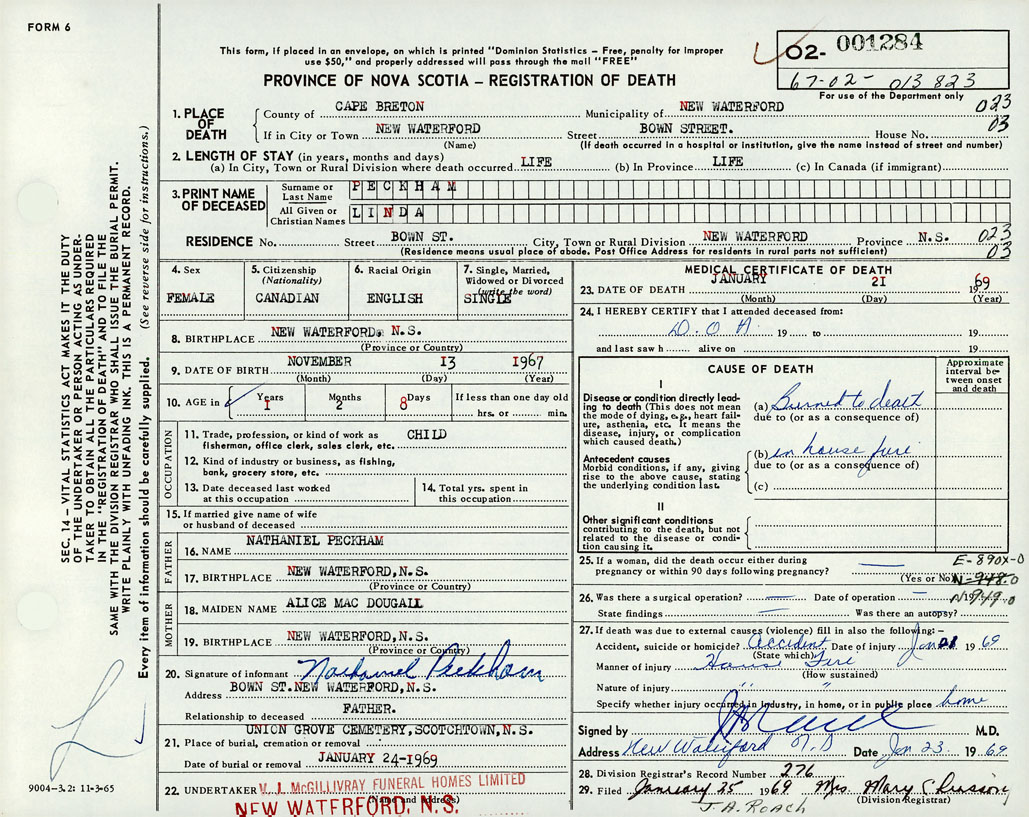 FORM 6
This form, if placed in an envelope, on which is printed "Dominion Statistics – Free, penalty for improper
use $50," and properly addressed will pass through the mail "FREE"
PROVINCE OF NOVA SCOTIA – REGISTRATION OF DEATH
02- 001284
67-02- 013823
For use of the Department only
023
03
1. PLACE OF DEATH
County of CAPE BRETON Municipality of NEW WATERFORD
If in City or Town NEW WATERFORD Street BOWN STREET. House No.
(Name) (If death occurred in a hospital or institution, give the name instead of street and number)
2. LENGTH OF STAY (in years, months and days)
(a) In City, Town or Rural Division where death occurred LIFE (b) In Province LIFE (c) In Canada (if immigrant)
3. PRINT NAME OF DECEASED
Surname or Last Name PECKHAM
All Given or Christian Names LINDA
RESIDENCE No. Street BOWN ST. City, Town or Rural Division NEW WATERFORD Province N.S. 023
(Residence means usual place of abode. Post Office Address for residents in rural parts not sufficient) 03
4. Sex FEMALE
5. Citizenship (Nationality) CANADIAN
6. Racial Origin ENGLISH
7. Single, Married, Widowed or Divorced (write the word) SINGLE
8. BIRTHPLACE NEW WATERFORD, N.S.
(Province or Country)
9. DATE OF BIRTH NOVEMBER 13 1967
(Month) (Day) (Year)
10. AGE in Years 1 Months 2 Days 8 If less than one day old
hrs. or min.
OCCUPATION
11. Trade, profession, or kind of work as CHILD
fisherman, office clerk, sales clerk, etc.
12. Kind of industry or business, as fishing,
bank, grocery store, etc.
13. Date deceased last worked
at this occupation
14. Total yrs. spent in
this occupation
15. If married give name of wife
or husband of deceased
FATHER
16. NAME NATHANIEL PECKHAM
17. BIRTHPLACE NEW WATERFORD, N.S.
(Province or Country)
MOTHER
18. MAIDEN NAME ALICE MAC DOUGALL
19. BIRTHPLACE NEW WATERFORD, N.S.
(Province or Country)
20. Signature of informant Nathaniel Peckham
Address BOWN ST.NEW WATERFORD, N.S.
Relationship to deceased FATHER.
UNION GROVE CEMETERY, SCOTCHTOWN, N.S.
21. Place of burial, cremation or removal
Date of burial or removal JANUARY 24-1969
22. UNDERTAKER V. J. McGILLIVRAY FUNERAL HOMES LIMITED
(Name and address)
NEW WATERFORD, N.S.
MEDICAL CERTIFICATE OF DEATH
23. DATE OF DEATH JANUARY 21 19 69
(Month) (Day) (Year)
24. I HEREBY CERTIFY that I attended deceased from:
D.O.A. 19 to 19
and last saw h alive on 19
CAUSE OF DEATH
Approximate interval between onset and death
I
Disease or condition directly leading to death (This does not mean the mode of dying, e.g., heart failure, asthenia, etc. It means the disease, injury, or complication which caused death.)
(a) Burned to death
due to (or as a consequence of)
Antecedent causes
Morbid conditions, if any, giving rise to the above cause, stating the underlying condition last.
(b) in house fire
due to (or as a consequence of)
(c)
II
Other significant conditions
contributing to the death, but not related to the disease or condition causing it.
25. If a woman, did the death occur either during
pregnancy or within 90 days following pregnancy? —
(Yes or No)
E-890X-0
N-948.0
N949.0
26. Was there a surgical operation? — Date of operation — 19
State findings — Was there an autopsy?
27. If death was due to external causes (violence) fill in also the following:–
Accident, suicide or homicide? Accident Date of injury Jan 21 19 69
(State which)
Manner of injury House Fire
(How sustained)
Nature of injury " "
Specify whether injury occurred in Industry, in home, or in public place home
Signed by M.D.
Address New Waterford N.S Date Jan 23 19 69
28. Division Registrar's Record Number 276
29. Filed January 25 19 69 Mrs. Mary
(Division Registrar)
J.A. ROACH
SEC. 14 – VITAL STATISTICS ACT MAKES IT THE DUTY
OF THE UNDERTAKER OR PERSON ACTING AS UNDER-
TAKER TO OBTAIN ALL THE PARTICULARS REQUIRED
IN THE "REGISTRATION OF DEATH" AND TO FILE THE
SAME WITH THE DIVISION REGISTRAR WHO SHALL ISSUE THE BURIAL PERMIT.
WRITE PLAINLY WITH UNFADING INK. THIS IS A PERMANENT RECORD.
Every item of information should be carefully supplied. (See reverse side for instructions.)
9004-3.2: 11-3-65